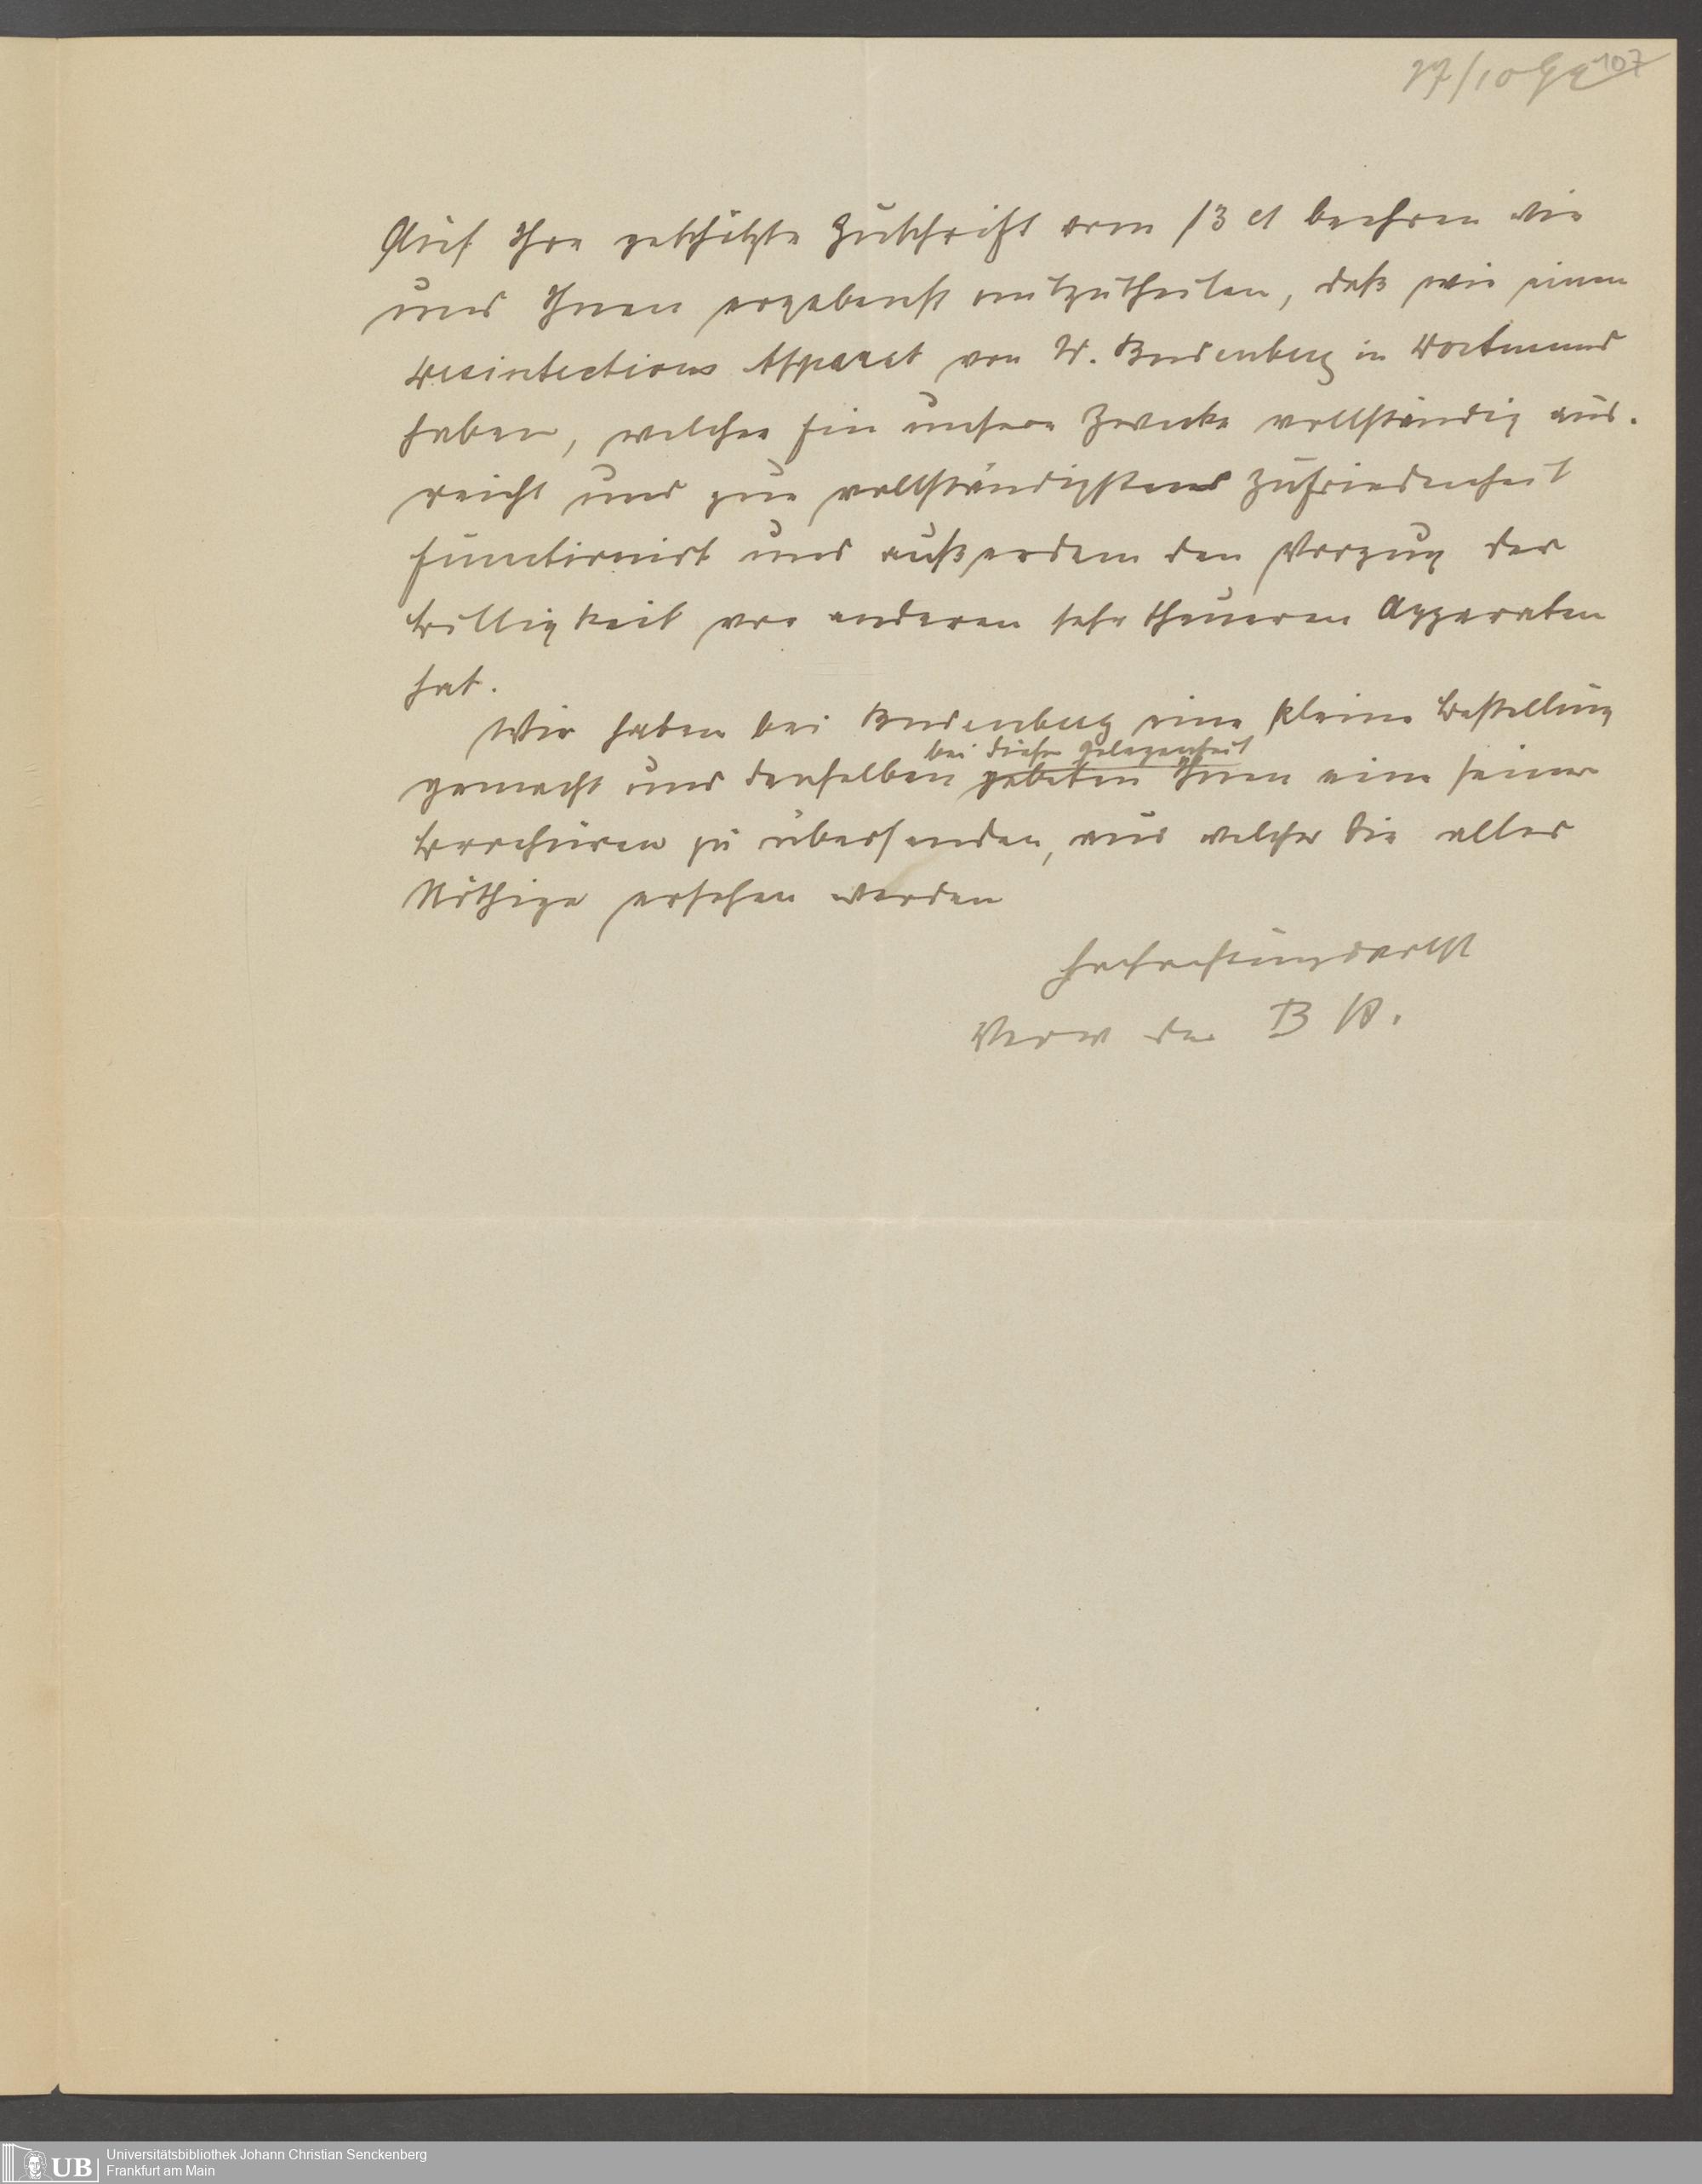 27/10 92
107
Auf Ihre geschätzte Zuschrift vom 13 ct beehren wir
uns Ihnen ergebenst mitzutheilen, daß wir einen
Desinfections Apparat von W. Budenberg in Dortmund
haben, welcher für unsere Zwecke vollständig aus-
reicht und zur vollständigsten Zufriedenheit
functionirt und außerdem den Vorzug der
Billigkeit vor anderen sehr theueren Apparaten
hat.
Wir haben bei Budenberg eine kleine Bestellung
bei dieser Gelegenheit
gemacht und denselben gebeten Ihnen eine seiner
Brochüren zu übersenden, aus welcher Sie alles
Nöthige ersehen werden
Hochachtungsvollst
Verw der B A.
Universitätsbibliothek Johann Christian Senckenberg
UB Frankfurt am Main